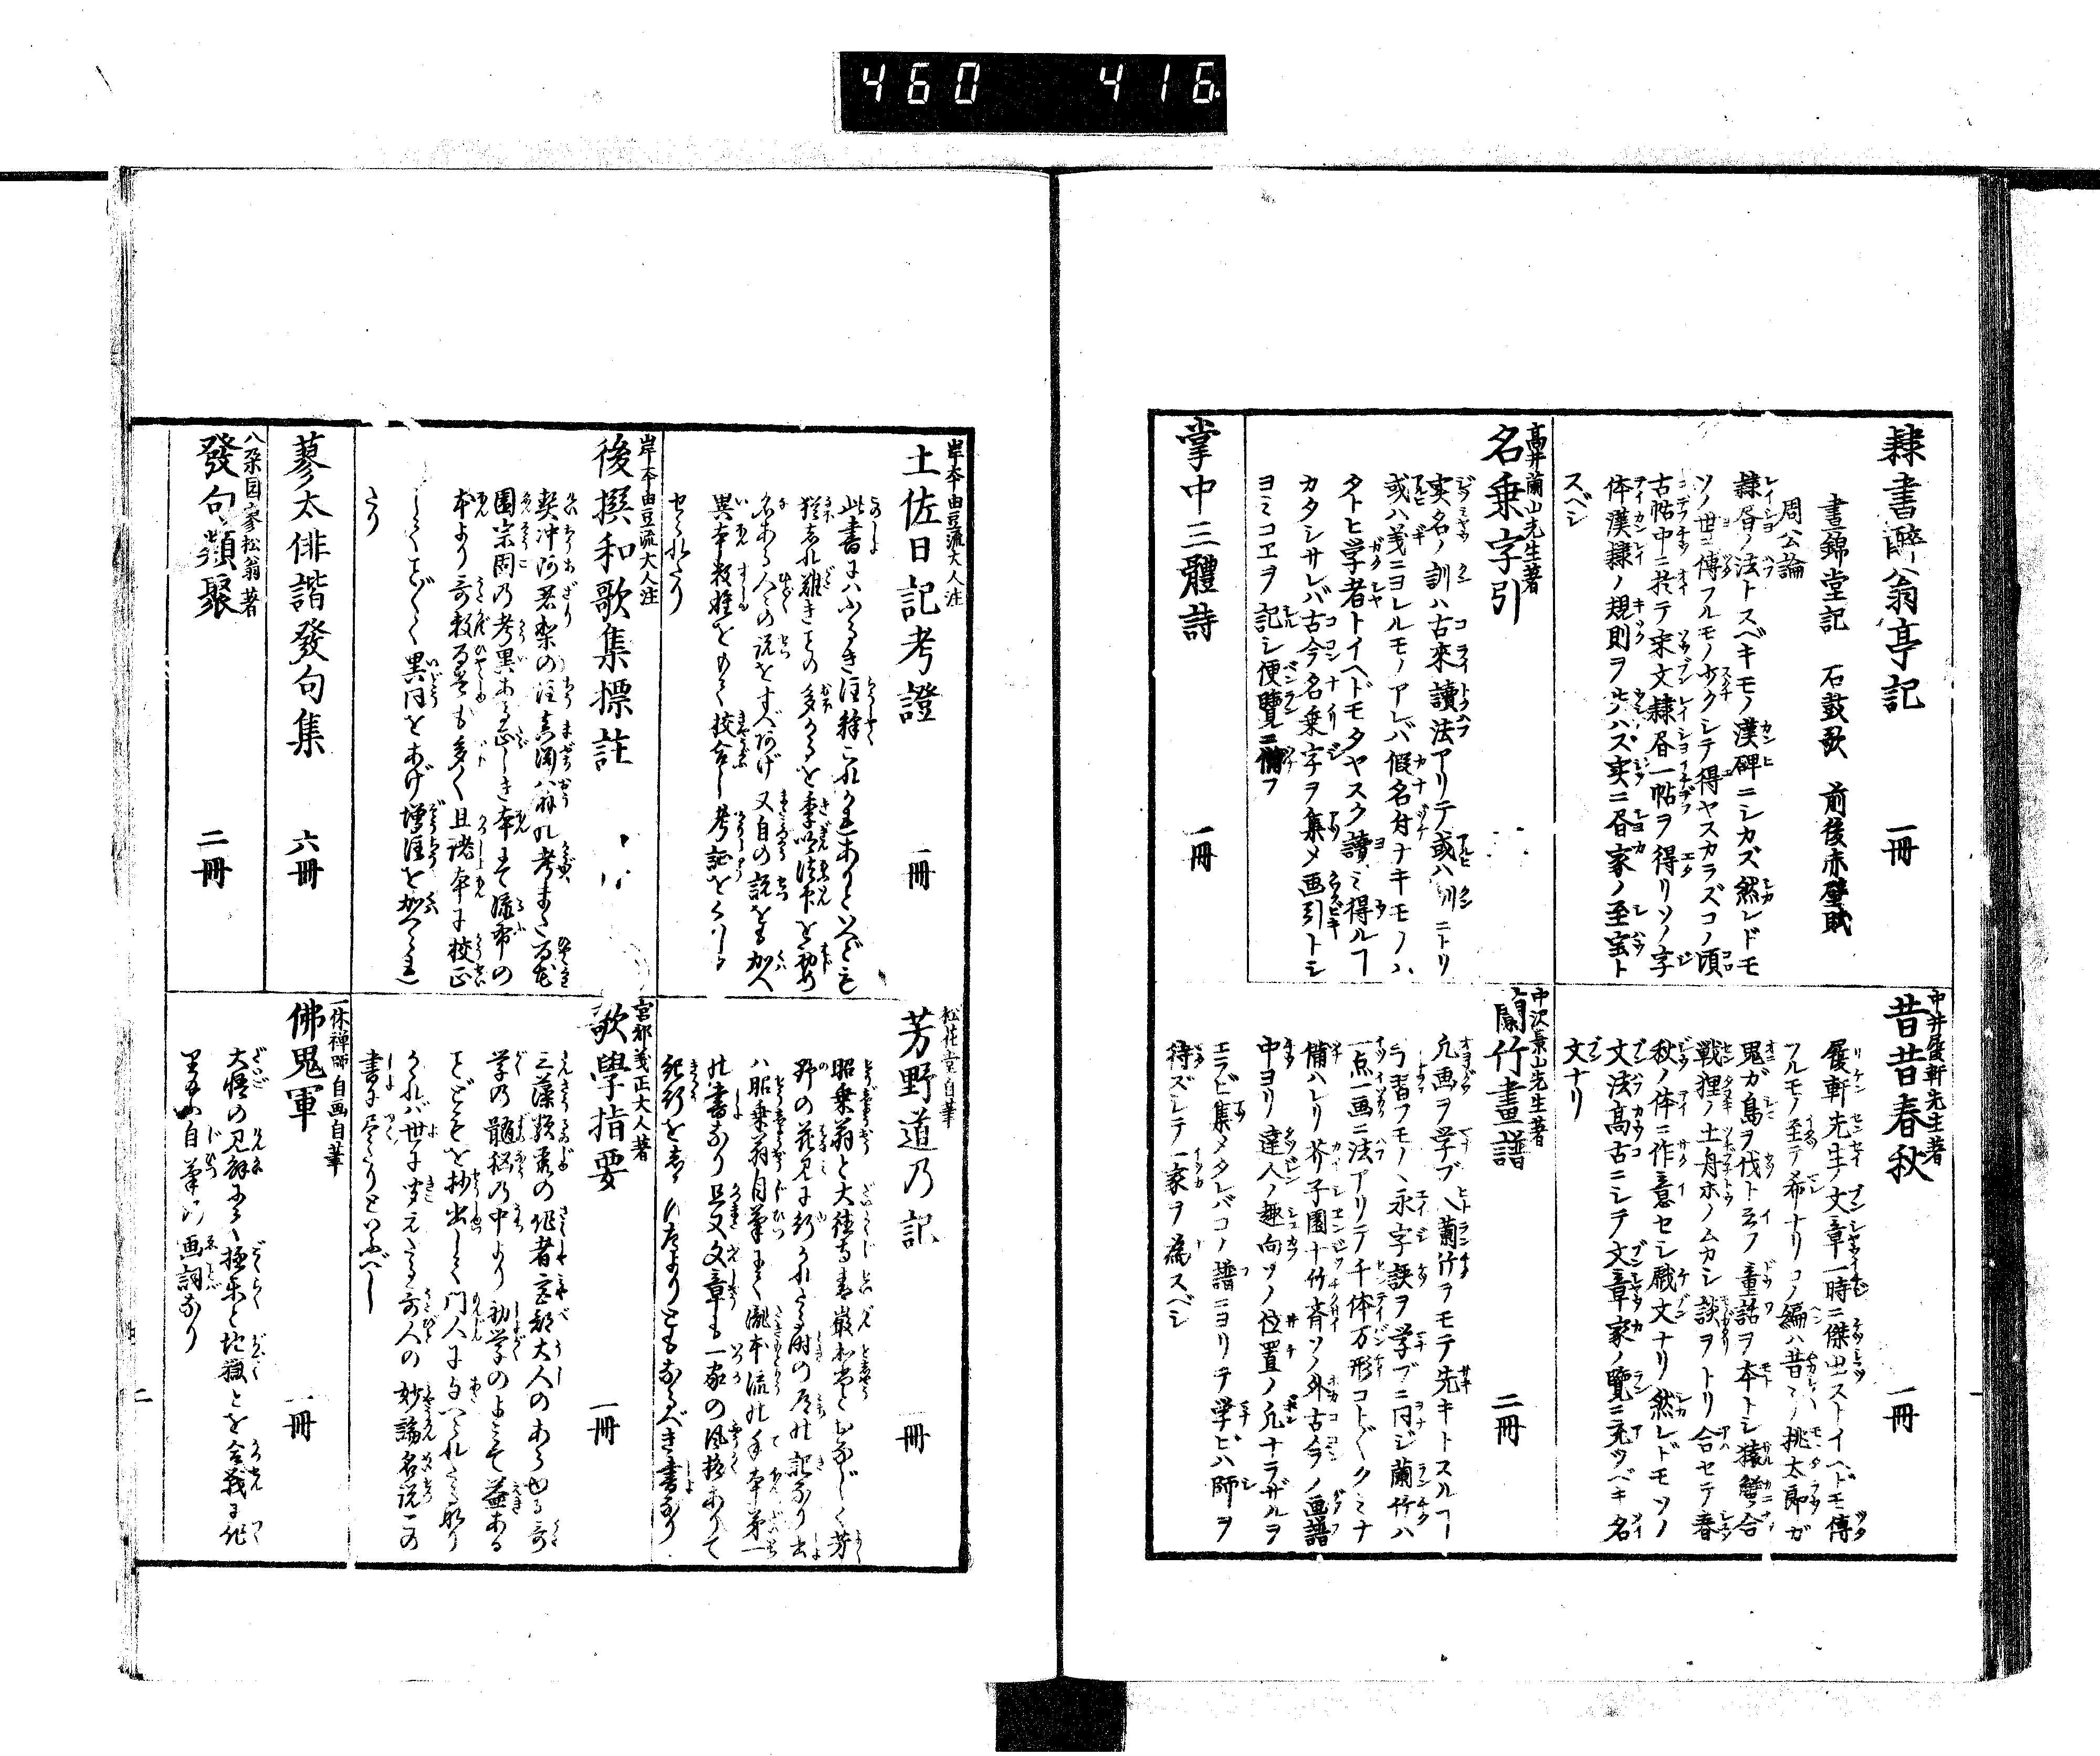 460 416.
隷書醉翁亭記 一冊
晝錦堂記 石鼓歌 前後赤壁賦
周公論
隷書ノ法トスベキモノ漢碑ニシカズ然レドモ
ソノ世ニ傳フルモノ少クシテ得ヤスカラズコノ頃
古帖中ニ於テ宋文隷書一帖ヲ得リソノ字
体漢隷ノ規則ヲ失ハズ実ニ書家ノ至宝ト
スベシ
中井履軒先生著
昔昔春秋 一冊
履軒先生ノ文章一時ニ傑出ストイヘドモ傳
フルモノ至テ希ナリコノ編ハ昔々ノ桃太郎ガ
鬼ガ島ヲ伐トヱフ童話ヲ本トシ猿蟹合
戦狸ノ土舟ホノムカシ談ヲトリ合セテ春
秋ノ体ニ作意セシ戯文ナリ然レドモソノ
文法高古ニシテ文章家ノ覽ニ充ツベキ名
文ナリ
高井蘭山先生著
名乗字引
実名ノ訓ハ古來讀法アリテ或ハ訓ニトリ
或ハ義ニヨレルモノアレバ假名付ナキモノハ
タトヒ学者トイヘドモタヤスク讀ミ得ルヿ
カタシサレバ古今名乗字ヲ集メ画引トシ
ヨミコヱヲ記シ便覽ニ備フ
中沢景山先生著
蘭竹畫譜 二冊
凡画ヲ学ブハ蘭竹ヲモテ先キトスルヿ
手習フモノヽ永字訣ヲ学ブニ同ジ蘭竹ハ
一点一画ニ法アリテ千体万形コトゴトクミナ
備ハレリ芥子園十竹斉ソノ外古今ノ画譜
中ヨリ達人ノ趣向ソノ位置ノ凡ナラザルヲ
エラビ集メタレバコノ譜ニヨリテ学ビハ師ヲ
待ズシテ一家ヲ為スベシ
掌中三體詩 一冊
岸本由豆流大人注
土佐日記考證 一冊
此書にハふるき注釋これかれありといへども
猶たれ難きことの多かるを季吟法印を初め
名ある人々の説をすべあげ又自の説をも加へ
異本数種をもて校合し考証をくハしう
せられたり
松花堂自筆
芳野道乃記 一冊
昭乗翁と大徳寺春巌和尚とおなじく芳
野の花見に行かれたる時の道の記なり此
八昭乗翁自筆にて瀧本流の手本第一
の書なり且又文章も一家の風格ありて
紀行を書く便りともなるべき書なり
岸本由豆流大人注
後撰和歌集標註
契冲阿闍梨の注真淵八翁の考また
園宗固の考異ある正しき本もて流布の
本より哥数も多く且諸本に校正
してことごとく異同をあげ增注を加へられ
たり
宮部義正大人著
歌學指要 一冊
三藻類聚の作者宮部大人のあらゆる哥
学の髄秘の中より初学のよみて益ある
ことどもを抄出して門人に与へられたるなり
されバ世に聞えたる哥人の妙論名説この
書に尽たりといふべし
蓼太俳諧發句集 六冊
八朶園寥松翁著
發句類聚 二冊
一休禅師自画自筆
佛鬼軍 一冊
大悟の見解にて極楽と地獄とを合戦に作
りたる自筆の画詞なり
二